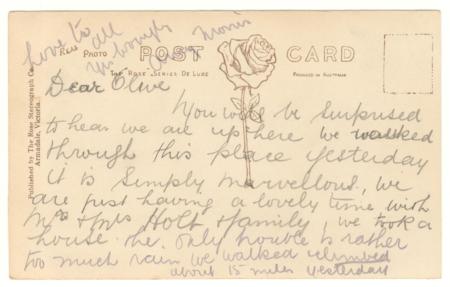 Love to all
yrs loving
Morris
REAL PHOTO
POST CARD
THE ROSE SERIES DE LUXE
PRODUCED IN AUSTRALIA
Published by The Rose Stereograph Co.
Armadale, Victoria.
Dear Olive
You will be surprised
to hear we are up here we walked
through this place yesterday
it is simply marvellous, we
are just having a lovely time with
Mr & Mrs Holt & family, we took a
house the only trouble is rather
too much rain we walked climbed
about 15 miles yesterday